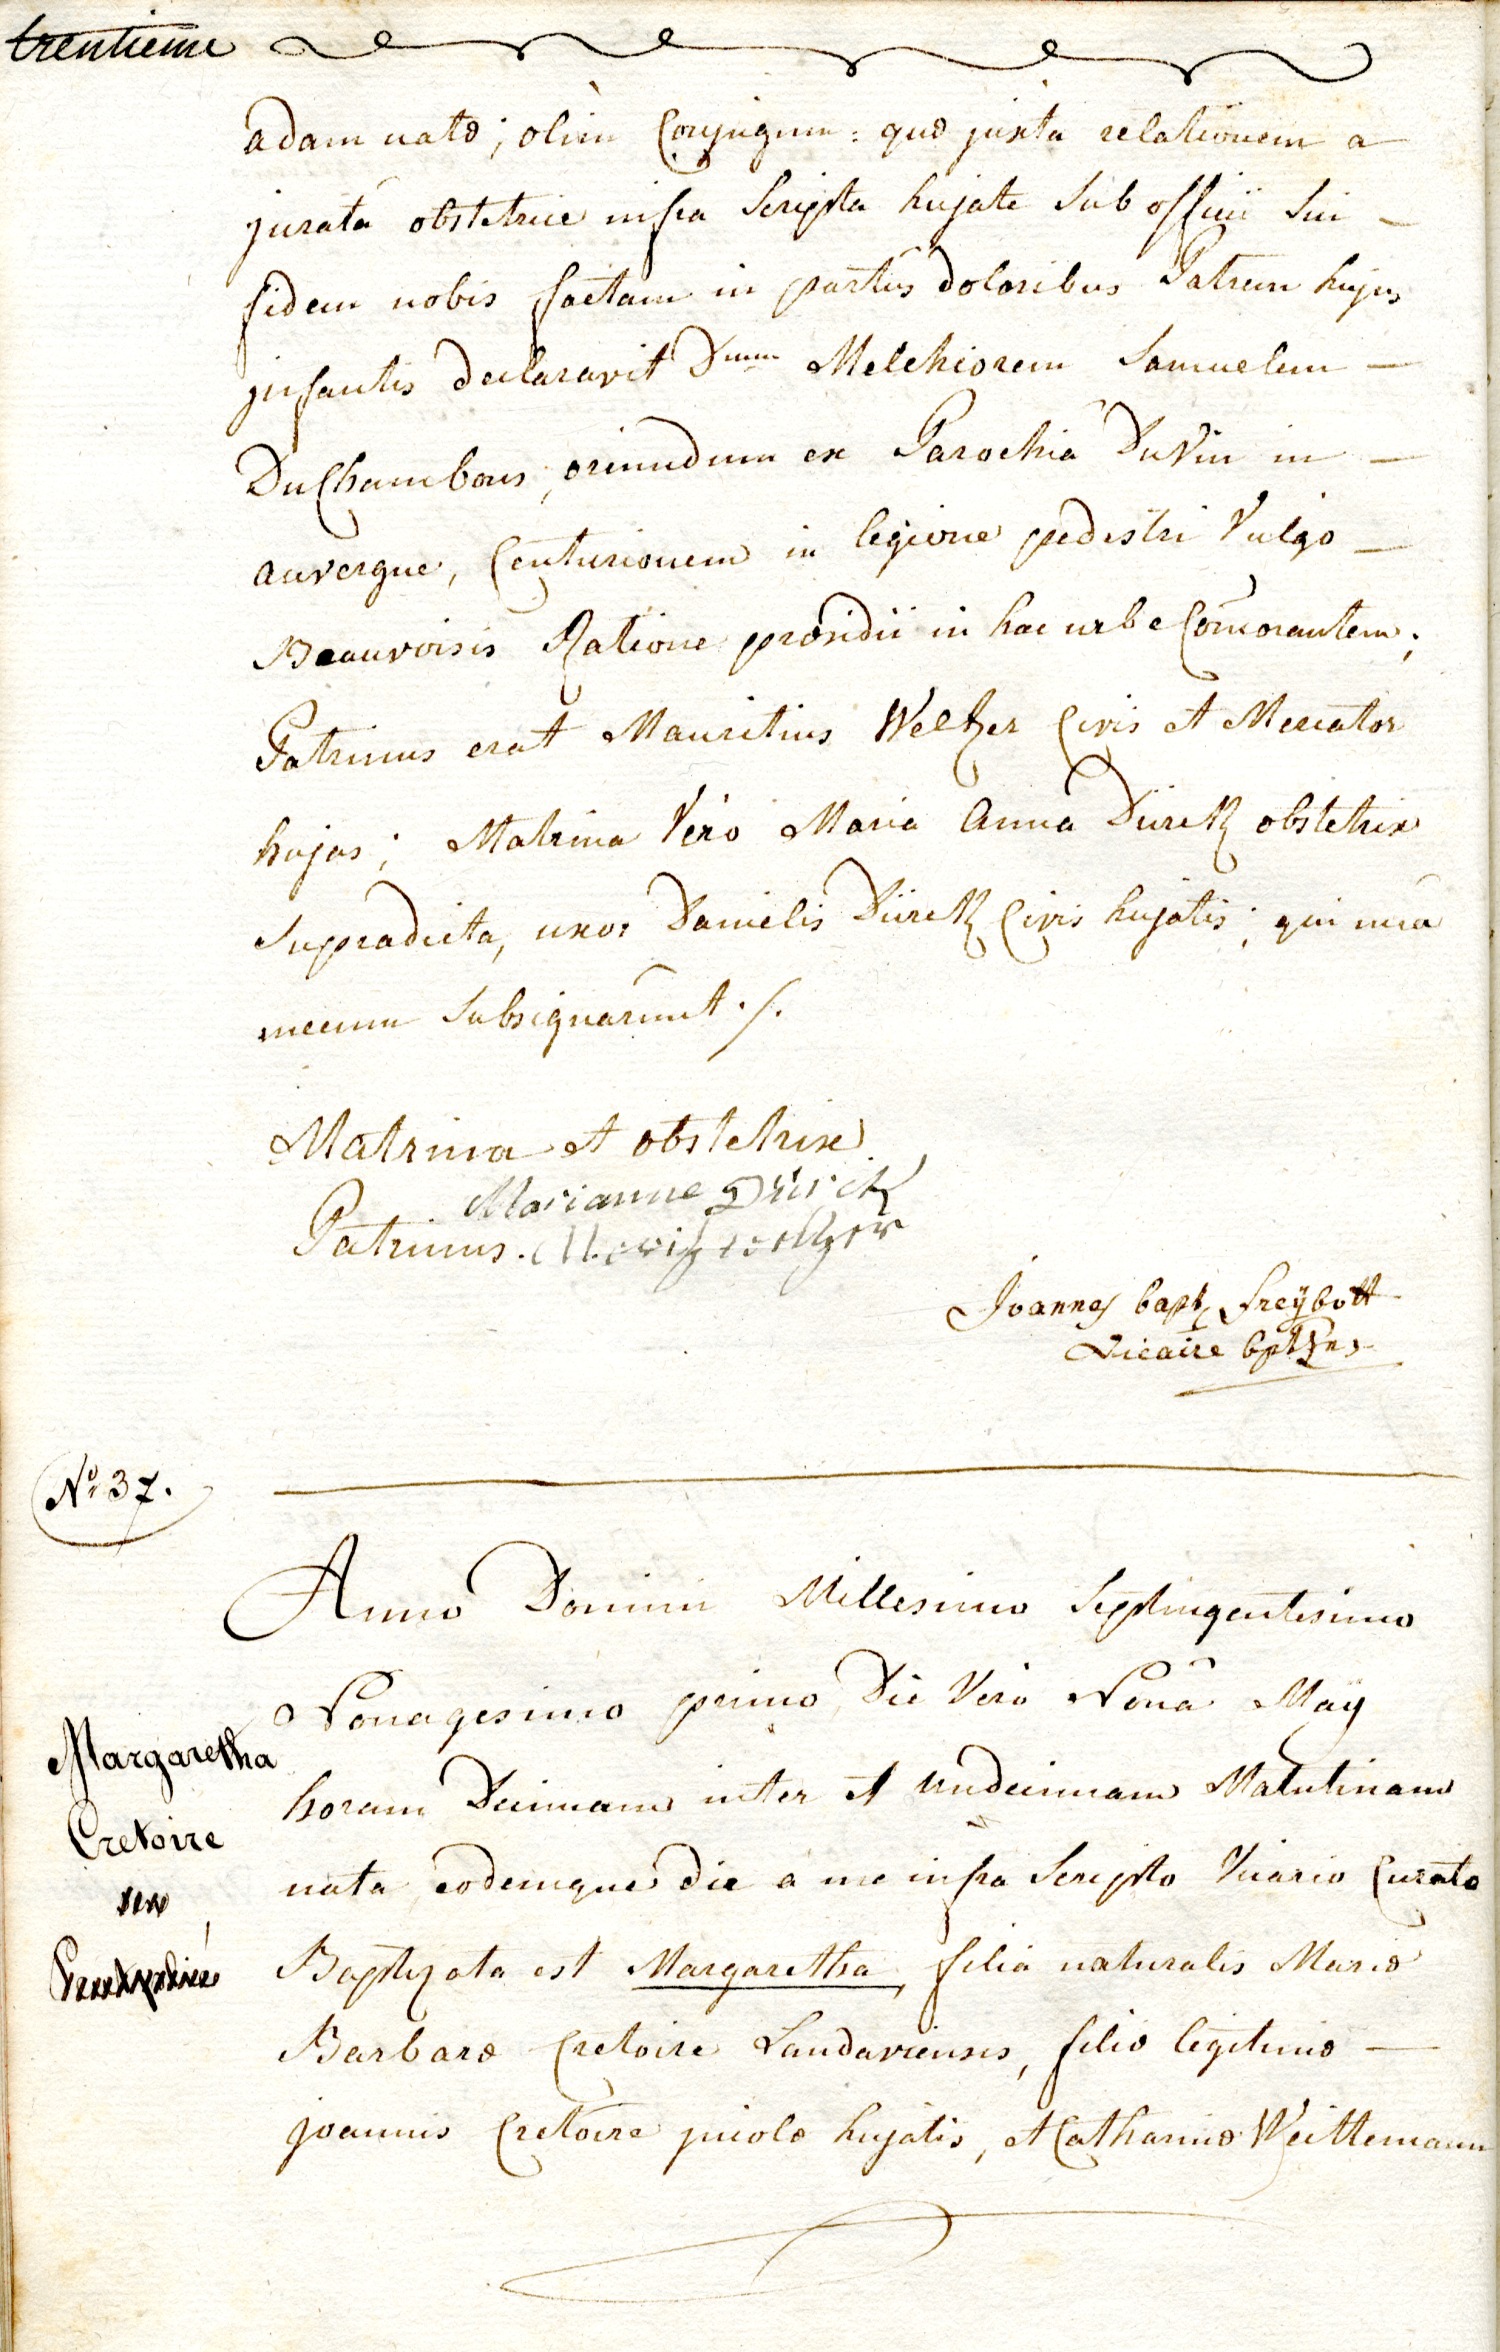 trentieme
adam natæ; olim Conjugum: quæ juxta relationem a
jurata obstetrice infra Scripta hujate Sub officii Sui
fidem nobis factam in partus doloribus Patrem hujus
infantis declaravit Dnum Melchiorem Samuelem
DuChambons, oriundum ex Parochiâ DuVin in
auvergne, Centurionem in legione pedestri Vulgo
Beauvoisis Ratione præsidii in hac urbe Com̄orantem;
Patrinus erat Mauritius Weltzer Civis et Mercator
hujas; Matrina Vero Maria Anna Dürck obstetrix
Supradicta, uxor Danielis Dürck Civis hujatis; qui una
mecum Subsignarunt ./.
Matrina et obstetrix
Marianne Dürck
Patrinus. Moritz weltzer
Joannes bapt freÿbott
Vicaire
No 37.
Anno Domini Millesimo Septingentesimo
Nonagesimo primo, Die Vero Nonâ Maÿ
horam Decimam inter et undecimam Matutinam
nata, eodemque die a me infra Scripto Vicario Curato
Baptizata est Margaretha, filia naturalis Mariæ
Barbaræ Cretoire Landaviensis, filiæ legitimæ
joannis Cretoire incolæ hujatis, et Catharinæ Weittemann
Margaretha
Cretoire